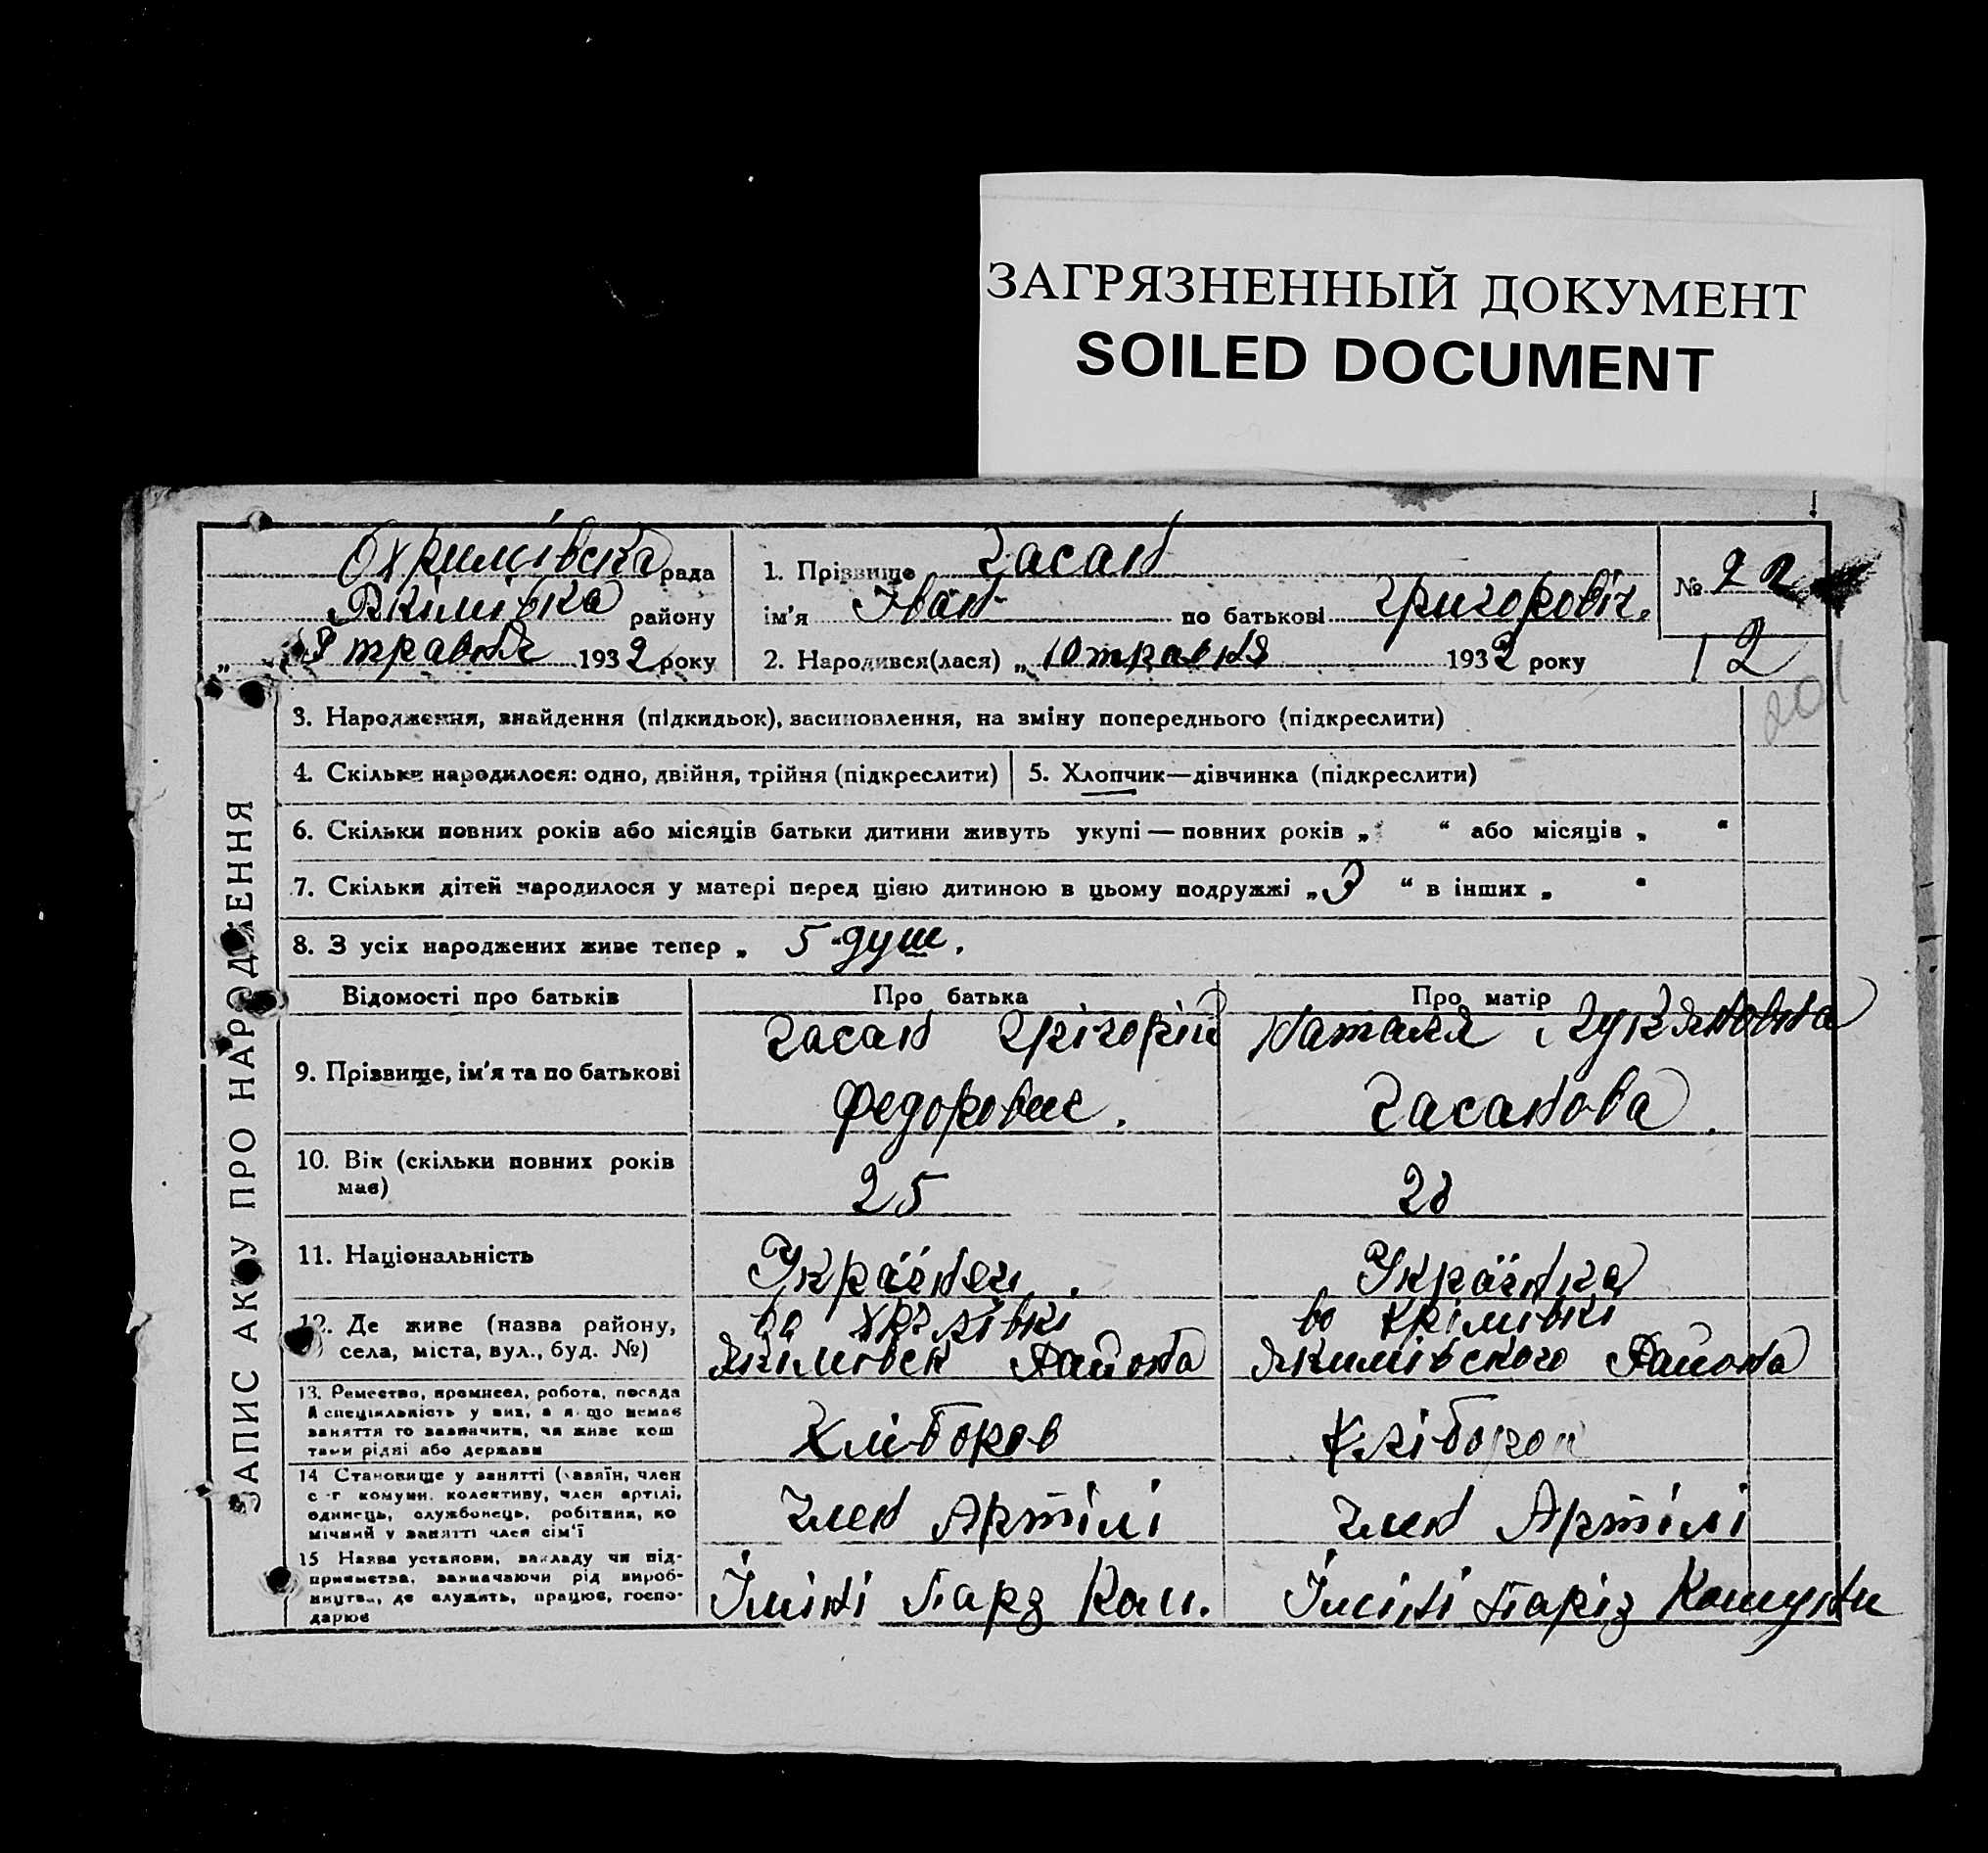 ЗАГРЯЗНЕННЫЙ ДОКУМЕНТ
SOILED DOCUMENT
ЗАПИС АКТУ ПРО НАРОДЖЕННЯ
Охримівска рада
Якімівка району
травня 1932 року
1. Прізвище Гасан
ім'я Іван по батькові Григоровіч.
2. Народився(лася) „ 10 травня 1932 року
№ 22
12
201
3. Народження, знайдення (підкидьок), засиновлення, на зміну попереднього (підкреслити)
4. Скільки народилося: одно, двійня, трійня (підкреслити)
5. Хлопчик—дівчинка (підкреслити)
6. Скільки повних років або місяців батьки дитини живуть укупі — повних років „ “ або місяців „ “
7. Скільки дітей народилося у матері перед цією дитиною в цьому подружжі „ 3 “ в інших „ “
8. З усіх народжених живе тепер „ 5 душ.
Відомості про батьків
Про батька
Про матір
9. Прізвище, ім'я та по батькові
Гасан Грігорій
Федорович.
Наталя Лукяновна
Гасанова.
10. Вік (скільки повних років
має)
25
28
11. Національність
Українец.
Українка
12. Де живе (назва району,
села, міста, вул., буд. №)
Якімовск Района
во Хрімівкі
Якимівского Района
13. Ремество, промисел, робота, посада
й спеціяльність у них, а якщо немає
заняття то зазначити, чи живе кош
тами рідні або держави
Хлібороб
Хлібороб
14 Становище у занятті (хазяїн, член
с-г комуни, колективу, член артілі,
одинець, службовець, робітник, по
мічний у занятті член сім'ї
Член Артілі
Член Артілі
15 Назва установи, закладу чи під-
приємства, зазначаючи рід вироб-
ництва, де служить, працює, госпо-
дарює
Імїні Парз Ком.
Імїні Паріз Комуни